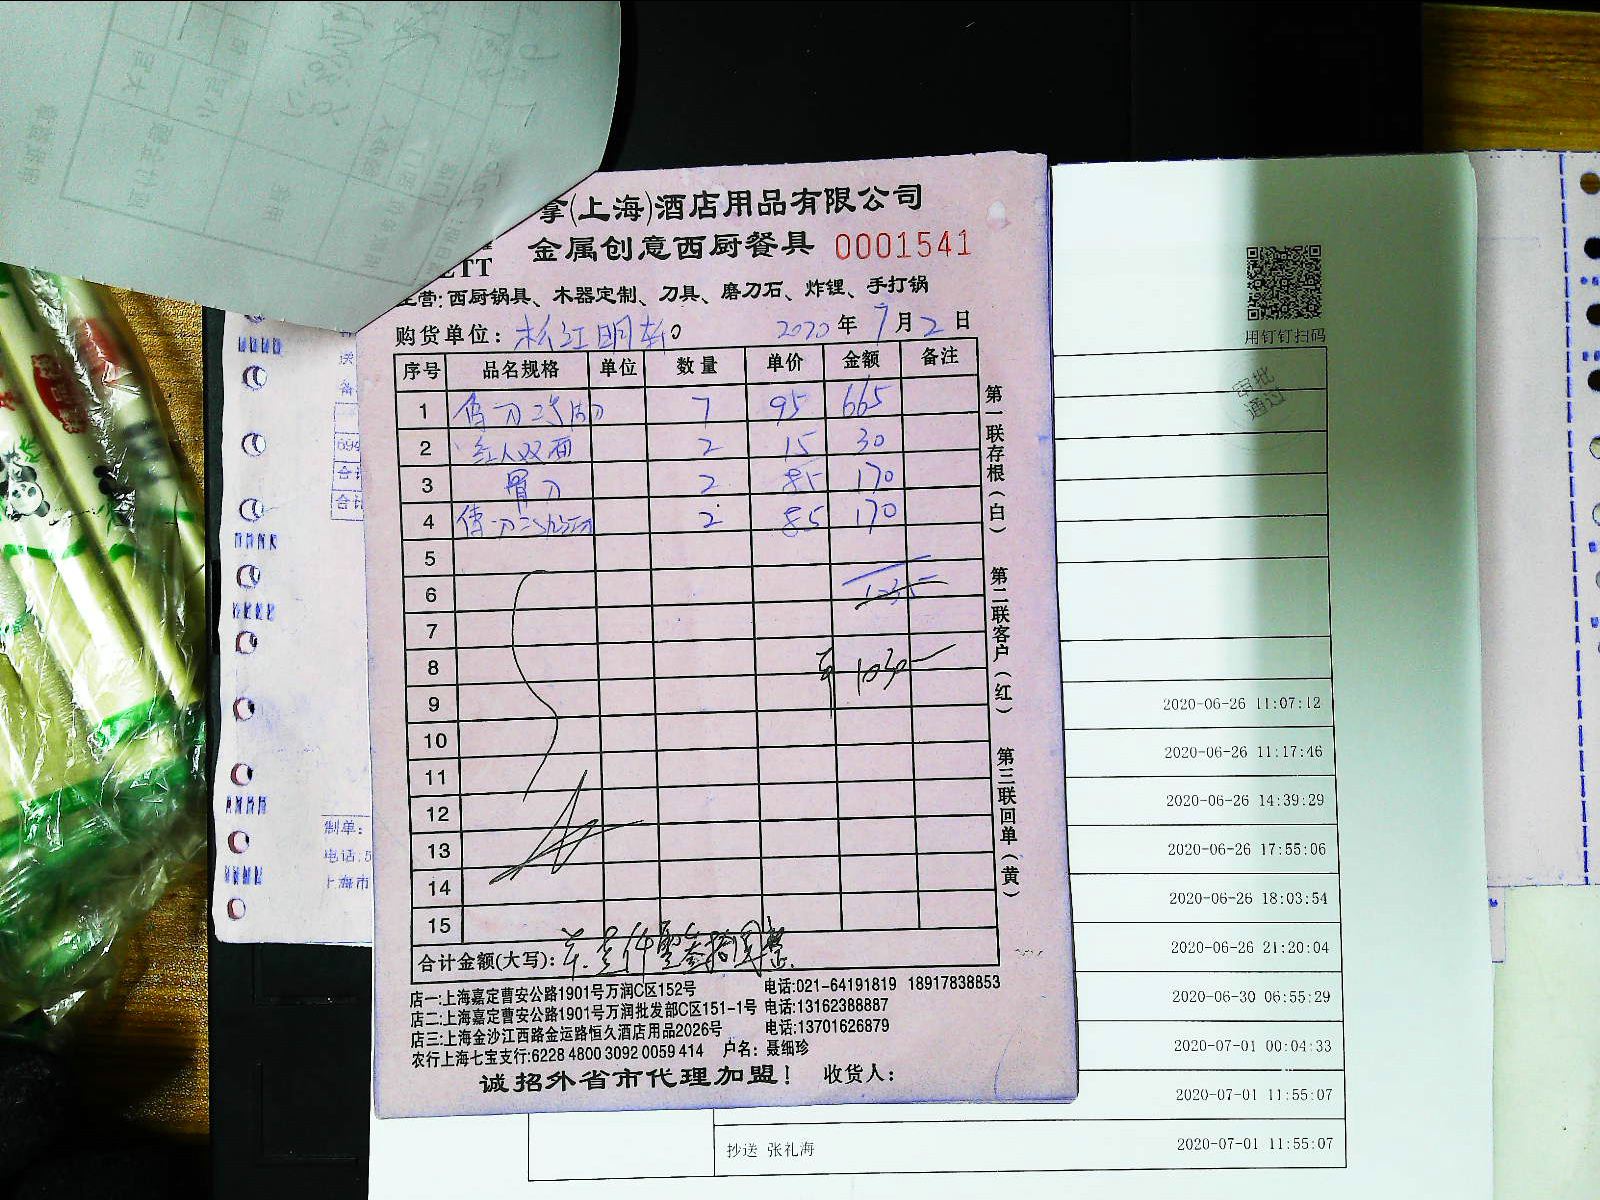 拿(上海)酒店用品有限公司
ETT 金属创意西厨餐具 0001541
主营:西厨锅具、木器定制、刀具、磨刀石、炸锂、手打锅
购货单位: 松江明轩 2020年7月2日
序号 品名规格 单位 数量 单价 金额 备注
1 7 95 665
2 红人双面 2 15 30
3 骨刀 2 85 170
4 2 85 170
5
6 1035
7
8 1030
9
10
11
12
13
14
15
合计金额(大写): 壹仟零叁拾圆整
店一:上海嘉定曹安公路1901号万润C区152号 电话:021-64191819 18917838853
店二:上海嘉定曹安公路1901号万润批发部C区151-1号 电话:13162388887
店三:上海金沙江西路金运路恒久酒店用品2026号 电话:13701626879
农行上海七宝支行:6228 4800 3092 0059 414 户名: 聂细珍
诚招外省市代理加盟! 收货人:
第一联存根(白) 第二联客户(红) 第三联回单(黄)
用钉钉扫码
审批
通过
2020-06-26 11:07:12
2020-06-26 11:17:46
2020-06-26 14:39:29
2020-06-26 17:55:06
2020-06-26 18:03:54
2020-06-26 21:20:04
2020-06-30 06:55:29
2020-07-01 00:04:33
2020-07-01 11:55:07
抄送 张礼海 2020-07-01 11:55:07
送
备
694
合计
合计
制单:
电话:5
上海市